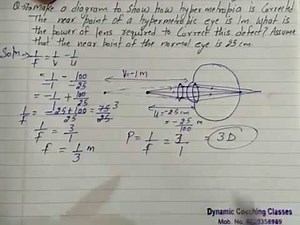 Q: make a diagram to show how hypermetropia is corrected
The near point of a hypermetropic eye is 1m. What is
the power of lens required to correct this defect? Assume
that the near point of the normal eye is 25cm.
Solⁿ 1/f = 1/v - 1/u
= 1/-1 - 100/-25
= -1 + 100/25
1/f = -25+100/25 = 75/25 3
1/f = 3/1
f = 1/3 m
V=-1m
u=-25cm
= -25/100 m
P = 1/f = 3/1 = 3D
Dynamic Coaching Classes